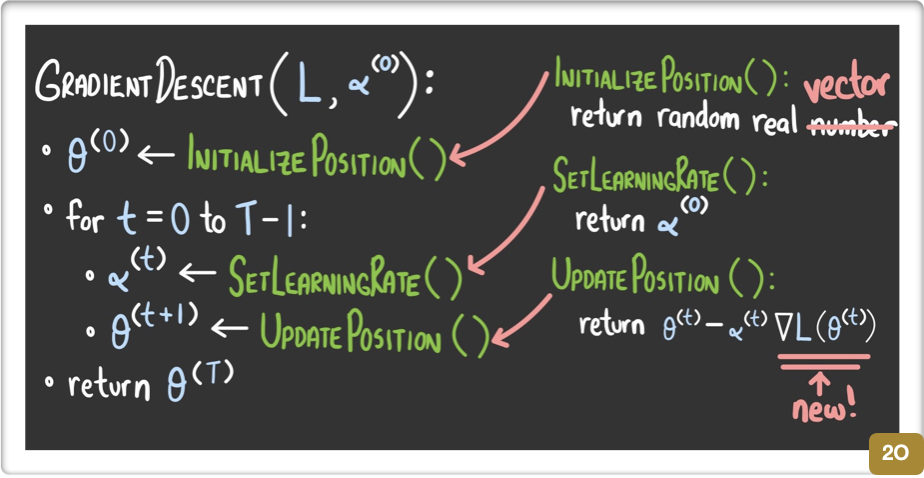 GRADIENTDESCENT(L, α^(0)):
• θ^(0) ← INITIALIZEPOSITION()
• for t = 0 to T-1:
• α^(t) ← SETLEARNINGRATE()
• θ^(t+1) ← UPDATEPOSITION()
• return θ^(T)
INITIALIZEPOSITION():
vector
return random real number
SETLEARNINGRATE():
return α^(0)
UPDATEPOSITION():
return θ^(t) - α^(t) ∇L(θ^(t))
new!
20